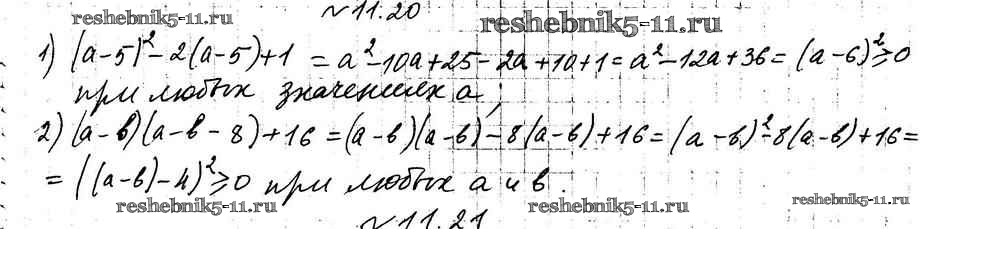 №11.20
reshebnik5-11.ru reshebnik5-11.ru
1) (a-5)²-2(a-5)+1 = a²-10a+25-2a+10+1 = a²-12a+36 = (a-6)²≥0
при любых значениях a,
2) (a-b)(a-b-8)+16 = (a-b)(a-b)-8(a-b)+16 = (a-b)²-8(a-b)+16 =
= ((a-b)-4)²≥0 при любых a и b.
reshebnik5-11.ru reshebnik5-11.ru reshebnik5-11.ru
№11.21